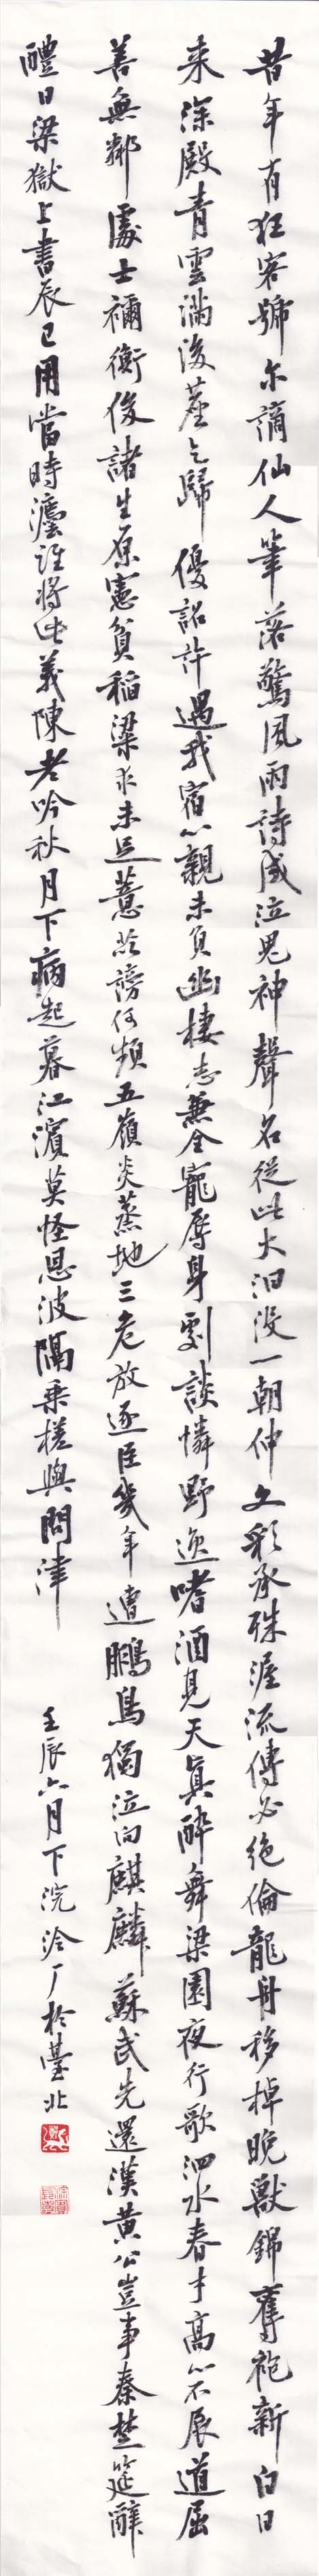 昔年有狂客號爾謫仙人筆落驚風雨詩成泣鬼神聲名從此大汩沒一朝伸文彩承殊渥流傳必絕倫龍舟移棹晚獸錦奪袍新白日
來深殿青雲滿後塵乞歸優詔許遇我宿心親未負幽棲志兼全寵辱身劇談憐野逸嗜酒見天真醉舞梁園夜行歌泗水春才高心不展道屈
善無鄰處士禰衡俊諸生原憲貧稻粱求未足薏苡謗何頻五嶺炎蒸地三危放逐臣幾年遭鵬鳥獨泣向麒麟蘇武先還漢黃公豈事秦楚筵辭
醴日梁獄上書辰已用當時法誰將此義陳老吟秋月下病起暮江濱莫怪恩波隔乘槎與問津
壬辰六月下浣 於臺北